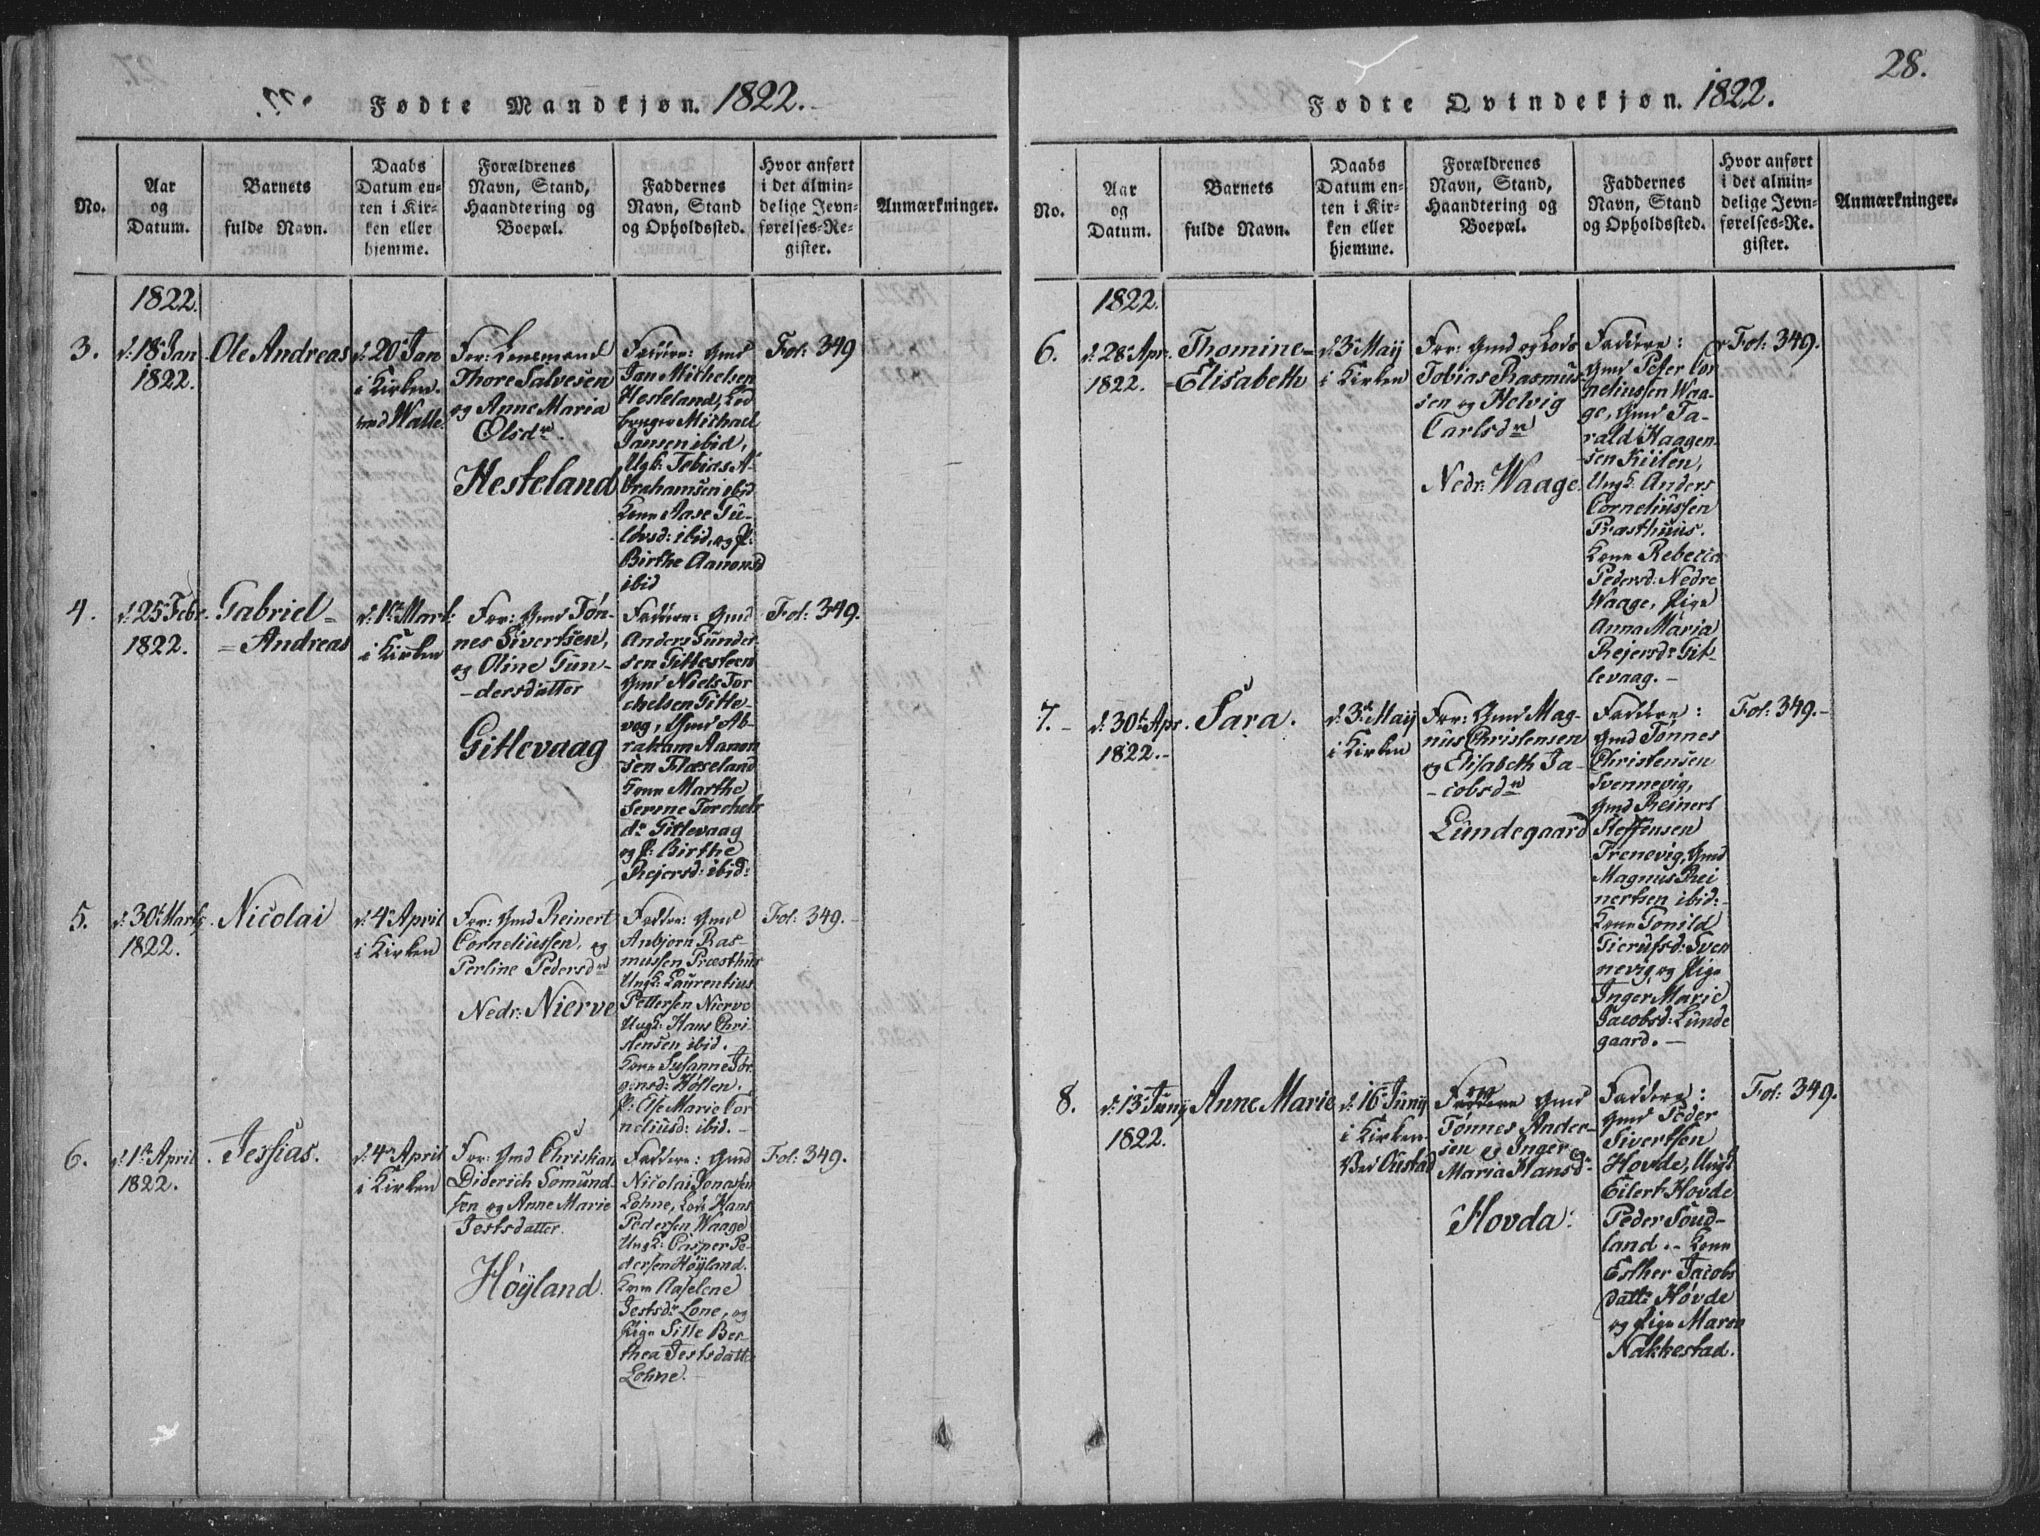 Fødte Mandkjøn. 1822.
No.
Aar
og
Datum.
Barnets
fulde Navn.
Daabs
Datum en-
ten i Kir-
ken eller
hjemme.
Forældrenes
Navn, Stand,
Haandtering og
Boepæl.
Faddernes
Navn, Stand
og Opholdssted.
Hvor anført
i det almin-
delige Jevn-
førelses-Re-
gister.
Anmærkninger.
1822.
3.
d: 18 Jan
1822.
Ole Andreas
d: 20 Jan
i Kirken
ved Walle
For: Lensmand
Thore Salvesen
og Anne Maria
Olsdr.
Hesteland
Faddere: Gmd
Jan Michelsen
Hesteland, Led
bruger Michael
Jansen ibid,
Ungk: Tobias A-
brahamsen ibid
Kone Aase Gu-
lovsd: ibid, og P:
Birthe Aanonsd
ibid
Fol: 349
4.
d: 25 Febr.
1822.
Gabriel=
=Andreas
d: 1te Mart
i Kirken
For: Gmd Tøn-
nes Sivertsen,
og Oline Gun-
-dersdatter
Gitlevaag
Faddere: Gmd
Anders Gunder-
sen Gitlesteen
Gmd Niels Tor-
chelsen Gitle-
vog, Gmd Ab-
raham Aanon
sen Flæseland
Kone Marthe
Serine Torchels
dr. Gitlevaag
og P: Birthe
Rejersd: ibid:
Fol: 349.
5.
d: 30te Marts
1822.
Nicolai
d: 4de April
i Kirken
For: Gmd Reinert
Corneliussen, og
Perline Pedersdr
Nedr: Nierve
Faddere: Gmd
Anbjorn Ras-
mussen Præsthuus
Ungk: Laurentius
Pettersen Nierve
Ungk: Hans Chri-
stensen ibid.
Kone Susanne Jør
gensd: Holten.
P: Else Marie Cor
neliusd: ibid. -
Fol: 349.
6.
d: 1te April
1822.
Jessias.
d: 4de April
i Kirken
For: Gmd Christian
Diderich Somund-
sen og Anne Marie
Jestsdatter.
Høyland.
Faddere: Gmd
Nicolai Jonassen
Lohne, Lods Hans
Pedersen Waage
Ungk: Casper Pe-
dersen Høyland.
Kone Aaselene
Jestsdr Lone, og
Pige Sille Ber-
thea Jestsdatter
Lohne. -
Fol: 349.
28.
Fødte Qvindekjøn. 1822.
No.
Aar
og
Datum.
Barnets
fulde Navn.
Daabs
Datum en-
ten i Kir-
ken eller
hjemme.
Forældrenes
Navn, Stand,
Haandtering og
Boepæl.
Faddernes
Navn, Stand
og Opholdssted.
Hvor anført
i det almin-
delige Jevn-
førelses-Re-
gister.
Anmærkninger.
1822.
6.
d: 28 Apr.
1822.
Thomine=
=Elisabeth
d: 3 Maij
i Kirken
For: Gmd og Lods
Tobias Rasmus-
sen og Helvig
Carlsdr
Nedr: Waage.
Faddere:
Gmd Peter Cor
neliussen Waa-
ge, Gmd Ta-
rald Haagen-
sen Kiilen,
Ungk: Anders
Corneliussen
Præsthuus.
Kone Rebecca
Pedersd: Nedre
Waage, Pige
Anna Maria
Rejersdr Git-
levaag. -
Fol: 349.
7. -
d: 30te Apr.
1822. -
Sara.
d: 3de Maij
i Kirken
For: Gmd Mag-
nus Christensen
og Elisabeth Ja-
-cobsdr
Lundegaard
Faddere:
Gmd Tønnes
Christensen
Svennevig,
Gmd Reinert
Steffensen
Trenevig, Gmd
Magnus Rei
nertsen ibid: -
Kone Tonild
Gierufsd: Sven
nevig, og Pige
Inger Marie
Jacobsd: Lunde
gaard. -
Fol: 349. -
8.
d: 13 Junij
1822.
Anne Marie
d: 16 Junij
i Kirken
For Gmd
Tønnes Ander-
sen og Inger
Maria Hansdr
Hovda.
Faddere:
Gmd Peder
Sivertsen
Hovde, Ungk
Eilert Hovde
Peder Soud-
land. - Kone
Esther Jacobs
datr Hovde
og Pige Maren
Nakkestad.
Fol: 349.